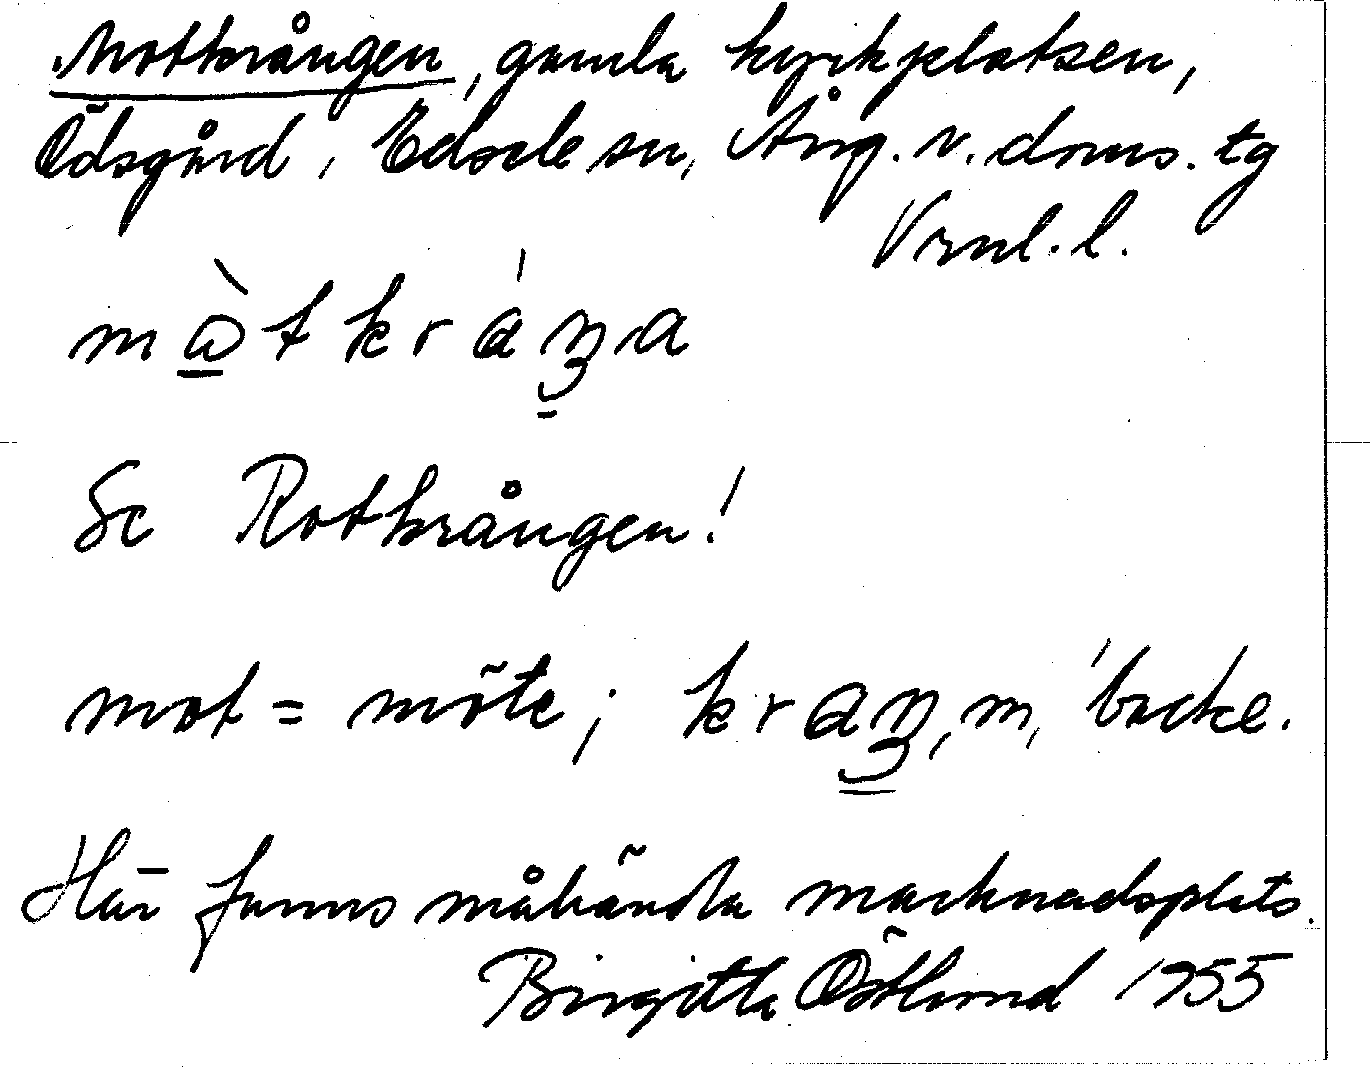 Motkrången, gamla kyrkplatsen,
Ödsgård, Edsele sn, Ång. v. doms. tg
Vrnl. l.
Se Rotkrången!
mot = möte; kraŋ, m, backe.
Här fanns måhända marknadsplats.
Birgitta Östlund 1955